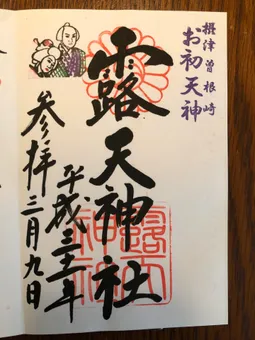 摂津曽根崎
お初天神
露天神社
平成三十一年
参拝三月九日